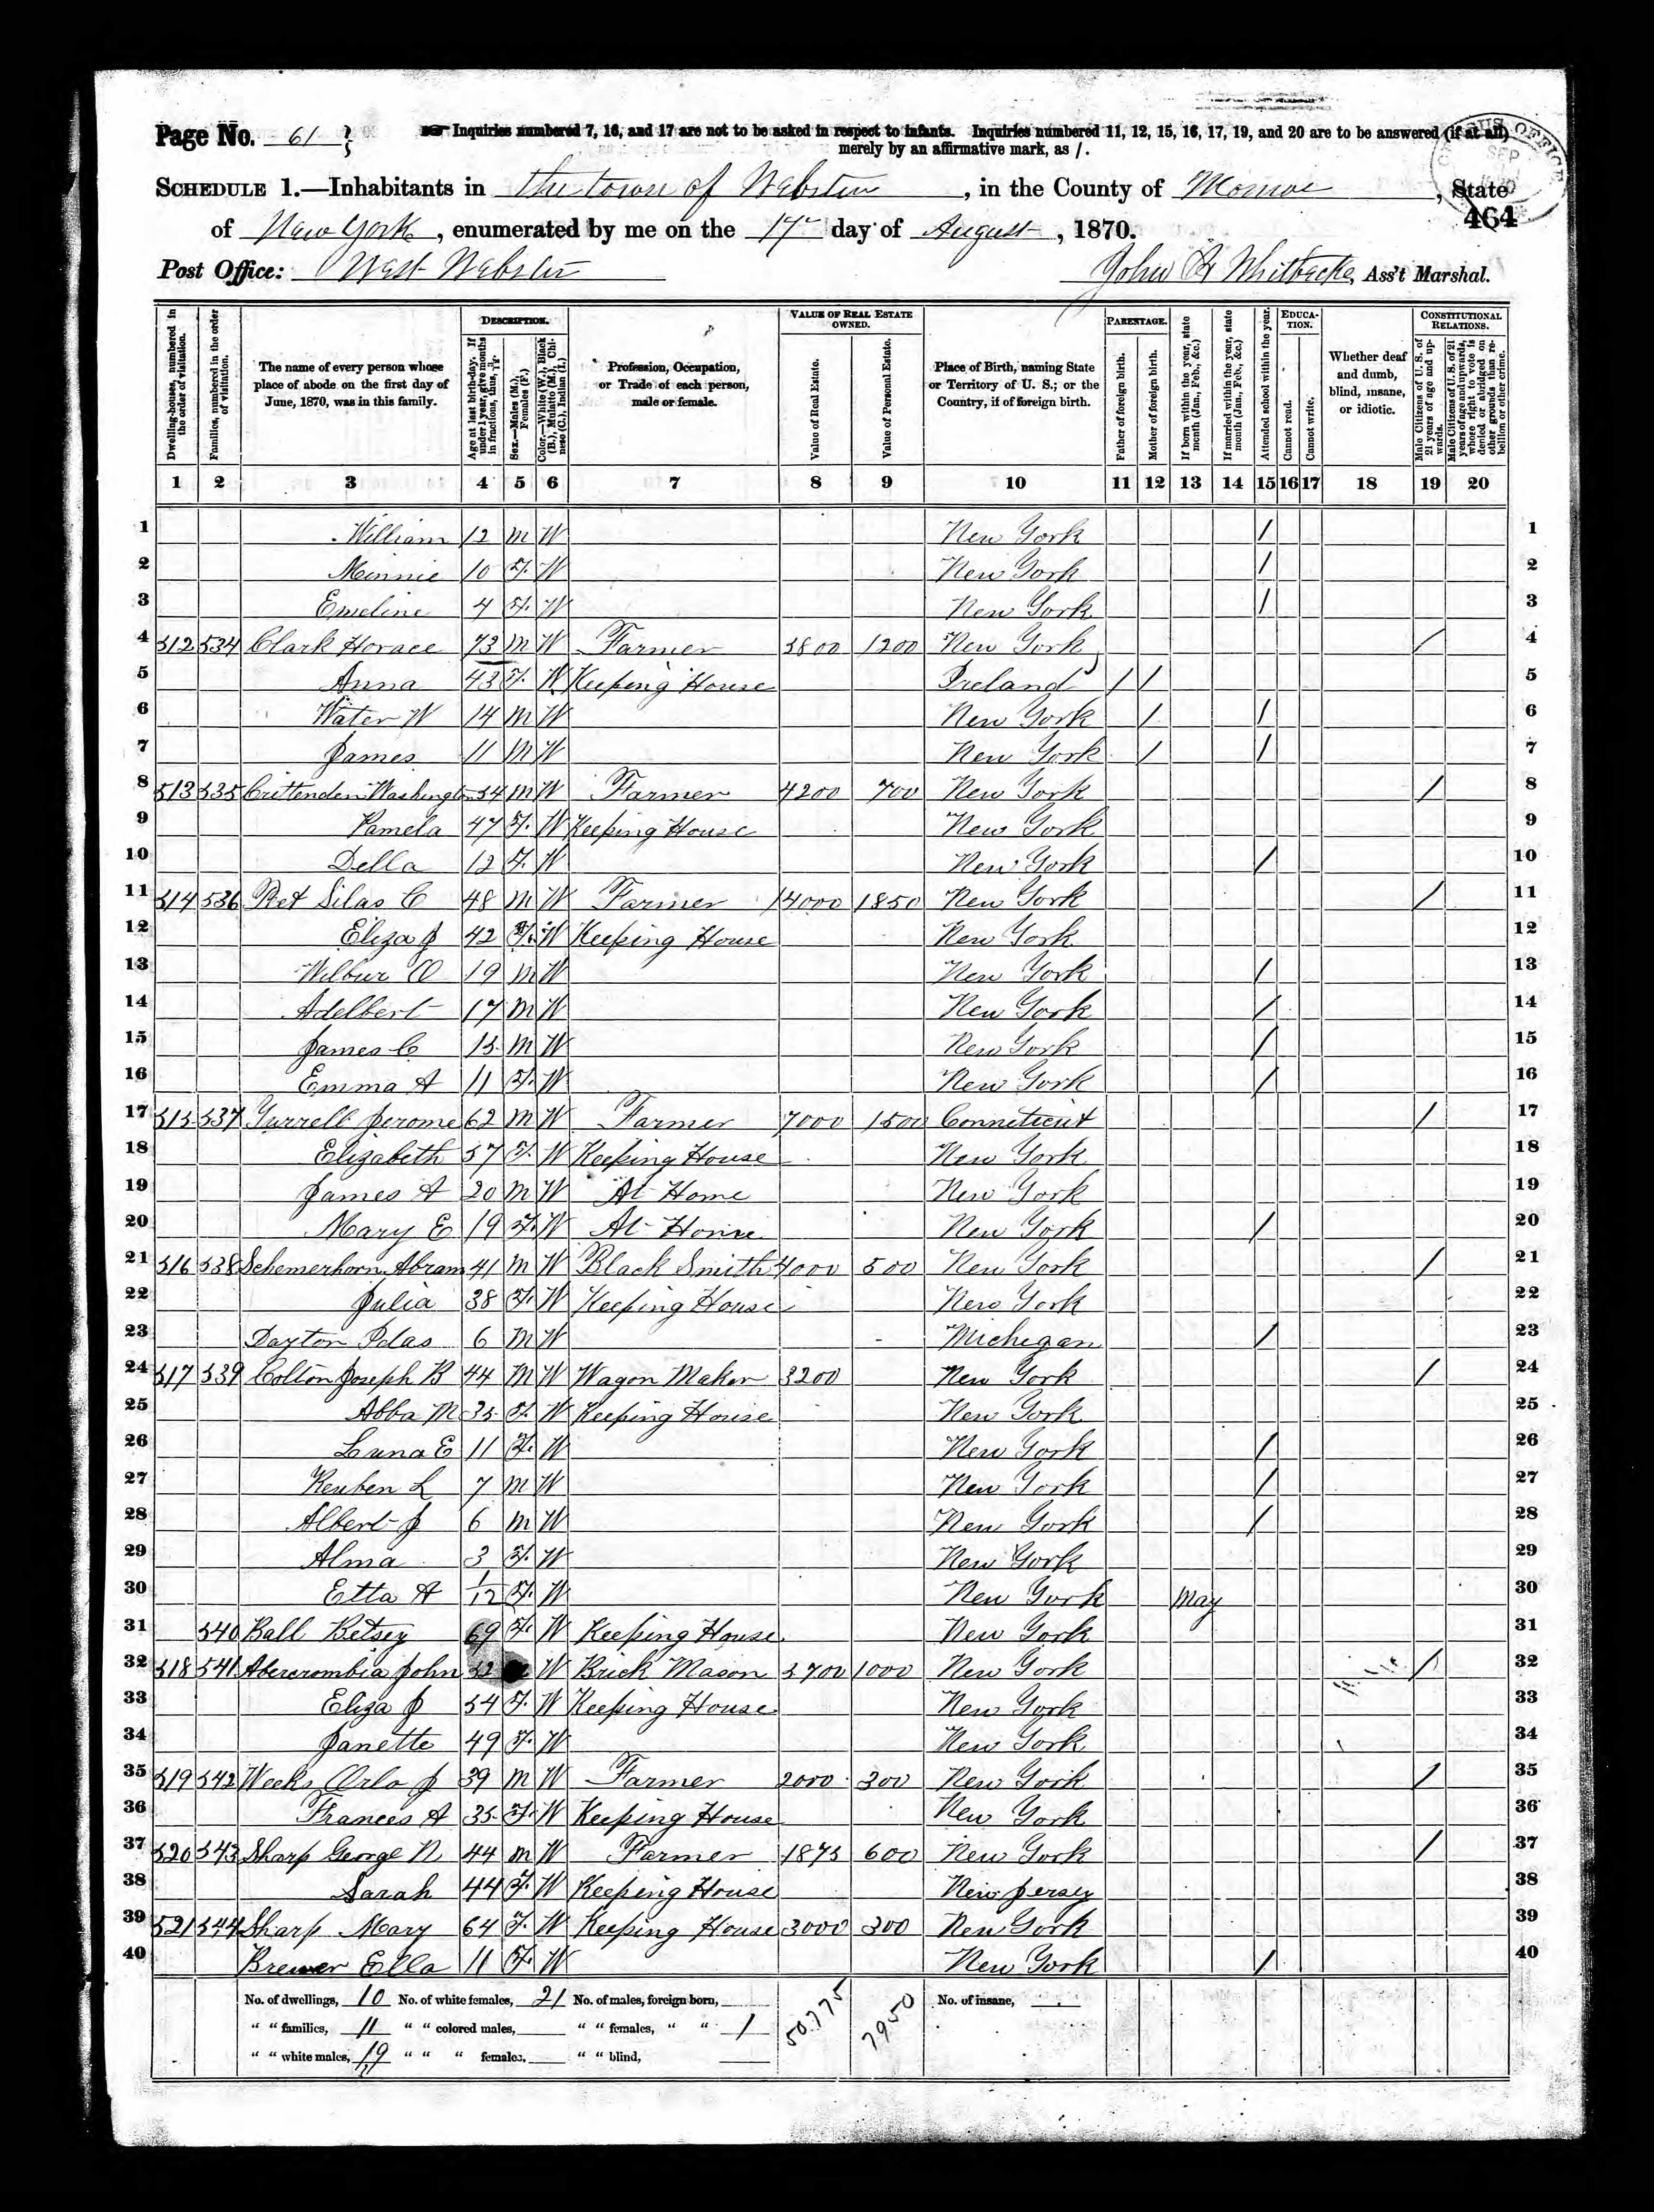 Page No. 61
Inquiries numbered 7, 16, and 17 are not to be asked in respect to infants. Inquiries numbered 11, 12, 15, 16, 17, 19, and 20 are to be answered (if at all)
merely by an affirmative mark, as /.
SCHEDULE 1.—Inhabitants in the town of Webster, in the County of Monroe, State
464
of New York, enumerated by me on the 17 day of August, 1870.
Post Office: West Webster
John Whitbeck, Ass't Marshal.
DESCRIPTION. VALUE OF REAL ESTATE OWNED. PARENTAGE. EDUCATION. CONSTITUTIONAL RELATIONS.
Dwelling-houses, numbered in the order of visitation.
Families, numbered in the order of visitation.
The name of every person whose place of abode on the first day of June, 1870, was in this family.
Age at last birth-day. If under 1 year, give months in fractions, thus,
Sex.—Males (M.), Females (F.)
Color.—White (W.), Black (B.), Mulatto (M.), Chinese (C.), Indian (I.)
Profession, Occupation, or Trade of each person, male or female.
Value of Real Estate.
Value of Personal Estate.
Place of Birth, naming State or Territory of U. S.; or the Country, if of foreign birth.
Father of foreign birth.
Mother of foreign birth.
If born within the year, state month (Jan., Feb., &c.)
If married within the year, state month (Jan., Feb., &c.)
Attended school within the year.
Cannot read.
Cannot write.
Whether deaf and dumb, blind, insane, or idiotic.
Male Citizens of U. S. of 21 years of age and upwards.
Male Citizens of U. S. of 21 years of age and upwards, whose right to vote is denied or abridged on other grounds than rebellion or other crime.
1 2 3 4 5 6 7 8 9 10 11 12 13 14 15 16 17 18 19 20
1 William 12 M W New York / 1
2 Minnie 10 F. W New York / 2
3 Emeline 4 F. W New York / 3
4 512 534 Clark Horace 73 M W Farmer 5800 1200 New York / 4
5 Anna 43 F. W Keeping House Ireland / / 5
6 Water W 14 M W New York / / 6
7 James 11 M W New York / / 7
8 513 535 Crittenden Washington 54 M W Farmer 4200 700 New York / 8
9 Pamela 47 F. W Keeping House New York 9
10 Della 12 F. W New York / 10
11 514 536 Pet Silas C 48 M W Farmer 14000 1850 New York / 11
12 Eliza J 42 F. W Keeping House New York 12
13 Wilbur O 19 M W New York / 13
14 Adelbert 17 M W New York / 14
15 James C 15 M W New York / 15
16 Emma A 11 F. W New York / 16
17 515 537 Yurrell Jerome 62 M W Farmer 7000 1500 Conneticut / 17
18 Elizabeth 57 F. W Keeping House New York 18
19 James A 20 M W At Home New York 19
20 Mary E 19 F. W At Home New York / 20
21 516 538 Schemerhorn Abram 41 M W Black Smith 4000 500 New York / 21
22 Julia 38 F. W Keeping House New York 22
23 Dayton Idas 6 M W Michigan / 23
24 517 539 Colton Joseph B 44 M W Wagon Maker 3200 New York / 24
25 Abba M 35 F. W Keeping House New York 25
26 Luna E 11 F. W New York / 26
27 Reuben L 7 M W New York / 27
28 Albert J 6 M W New York / 28
29 Alma 3 F. W New York 29
30 Etta A 1/12 F. W New York May 30
31 540 Ball Betsey 69 F. W Keeping House New York 31
32 518 541 Abercrombia John 52 W Brick Mason 5700 1000 New York / 32
33 Eliza J 54 F. W Keeping House New York 33
34 Janette 49 F. W New York 34
35 519 542 Weeks Orlo J 39 M W Farmer 2000 300 New York / 35
36 Frances A 35 F. W Keeping House New York 36
37 520 543 Sharp George N 44 M W Farmer 1875 600 New York / 37
38 Sarah 44 F. W Keeping House New Jersey 38
39 521 544 Sharp Mary 64 F. W Keeping House 3000 300 New York 39
40 Brewer Ella 11 F. W New York / 40
No. of dwellings, 10 No. of white females, 21 No. of males, foreign born, 50775 7950 No. of insane,
" " families, 11 " " colored males, " " females, " " 1
" " white males, 19 " " " females, " " blind,